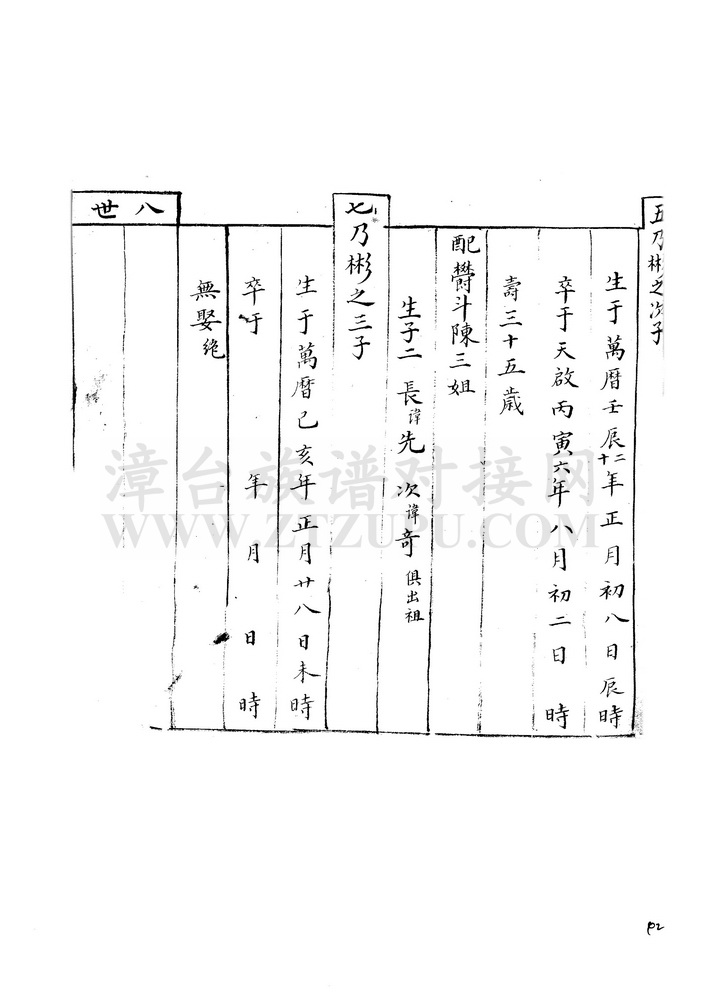 五乃彬之次子
生于萬曆壬辰二十年正月初八日辰時
卒于天啟丙寅六年八月初二日 時
壽三十五歲
配欎斗陳三姐
生子二 長諱先 次諱奇 俱出祖
七乃彬之三子
生于萬曆己亥年正月廿八日未時
卒于 年 月 日 時
無娶绝
八世
漳台族谱对接网
WWW.ZTZUPU.COM